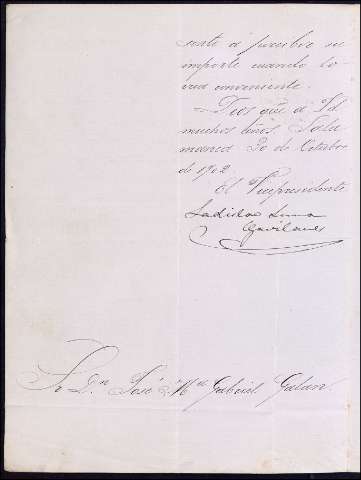 sente á percibir su
importe cuando lo
crea conveniente.
Dios gue á Vd
muchos años. Sala
manca 20 de Octubre
de 1902
El Vicepresidente
Ladislao Luna
Gavilanes
Sr Dn José Ma Gabriel Galán.